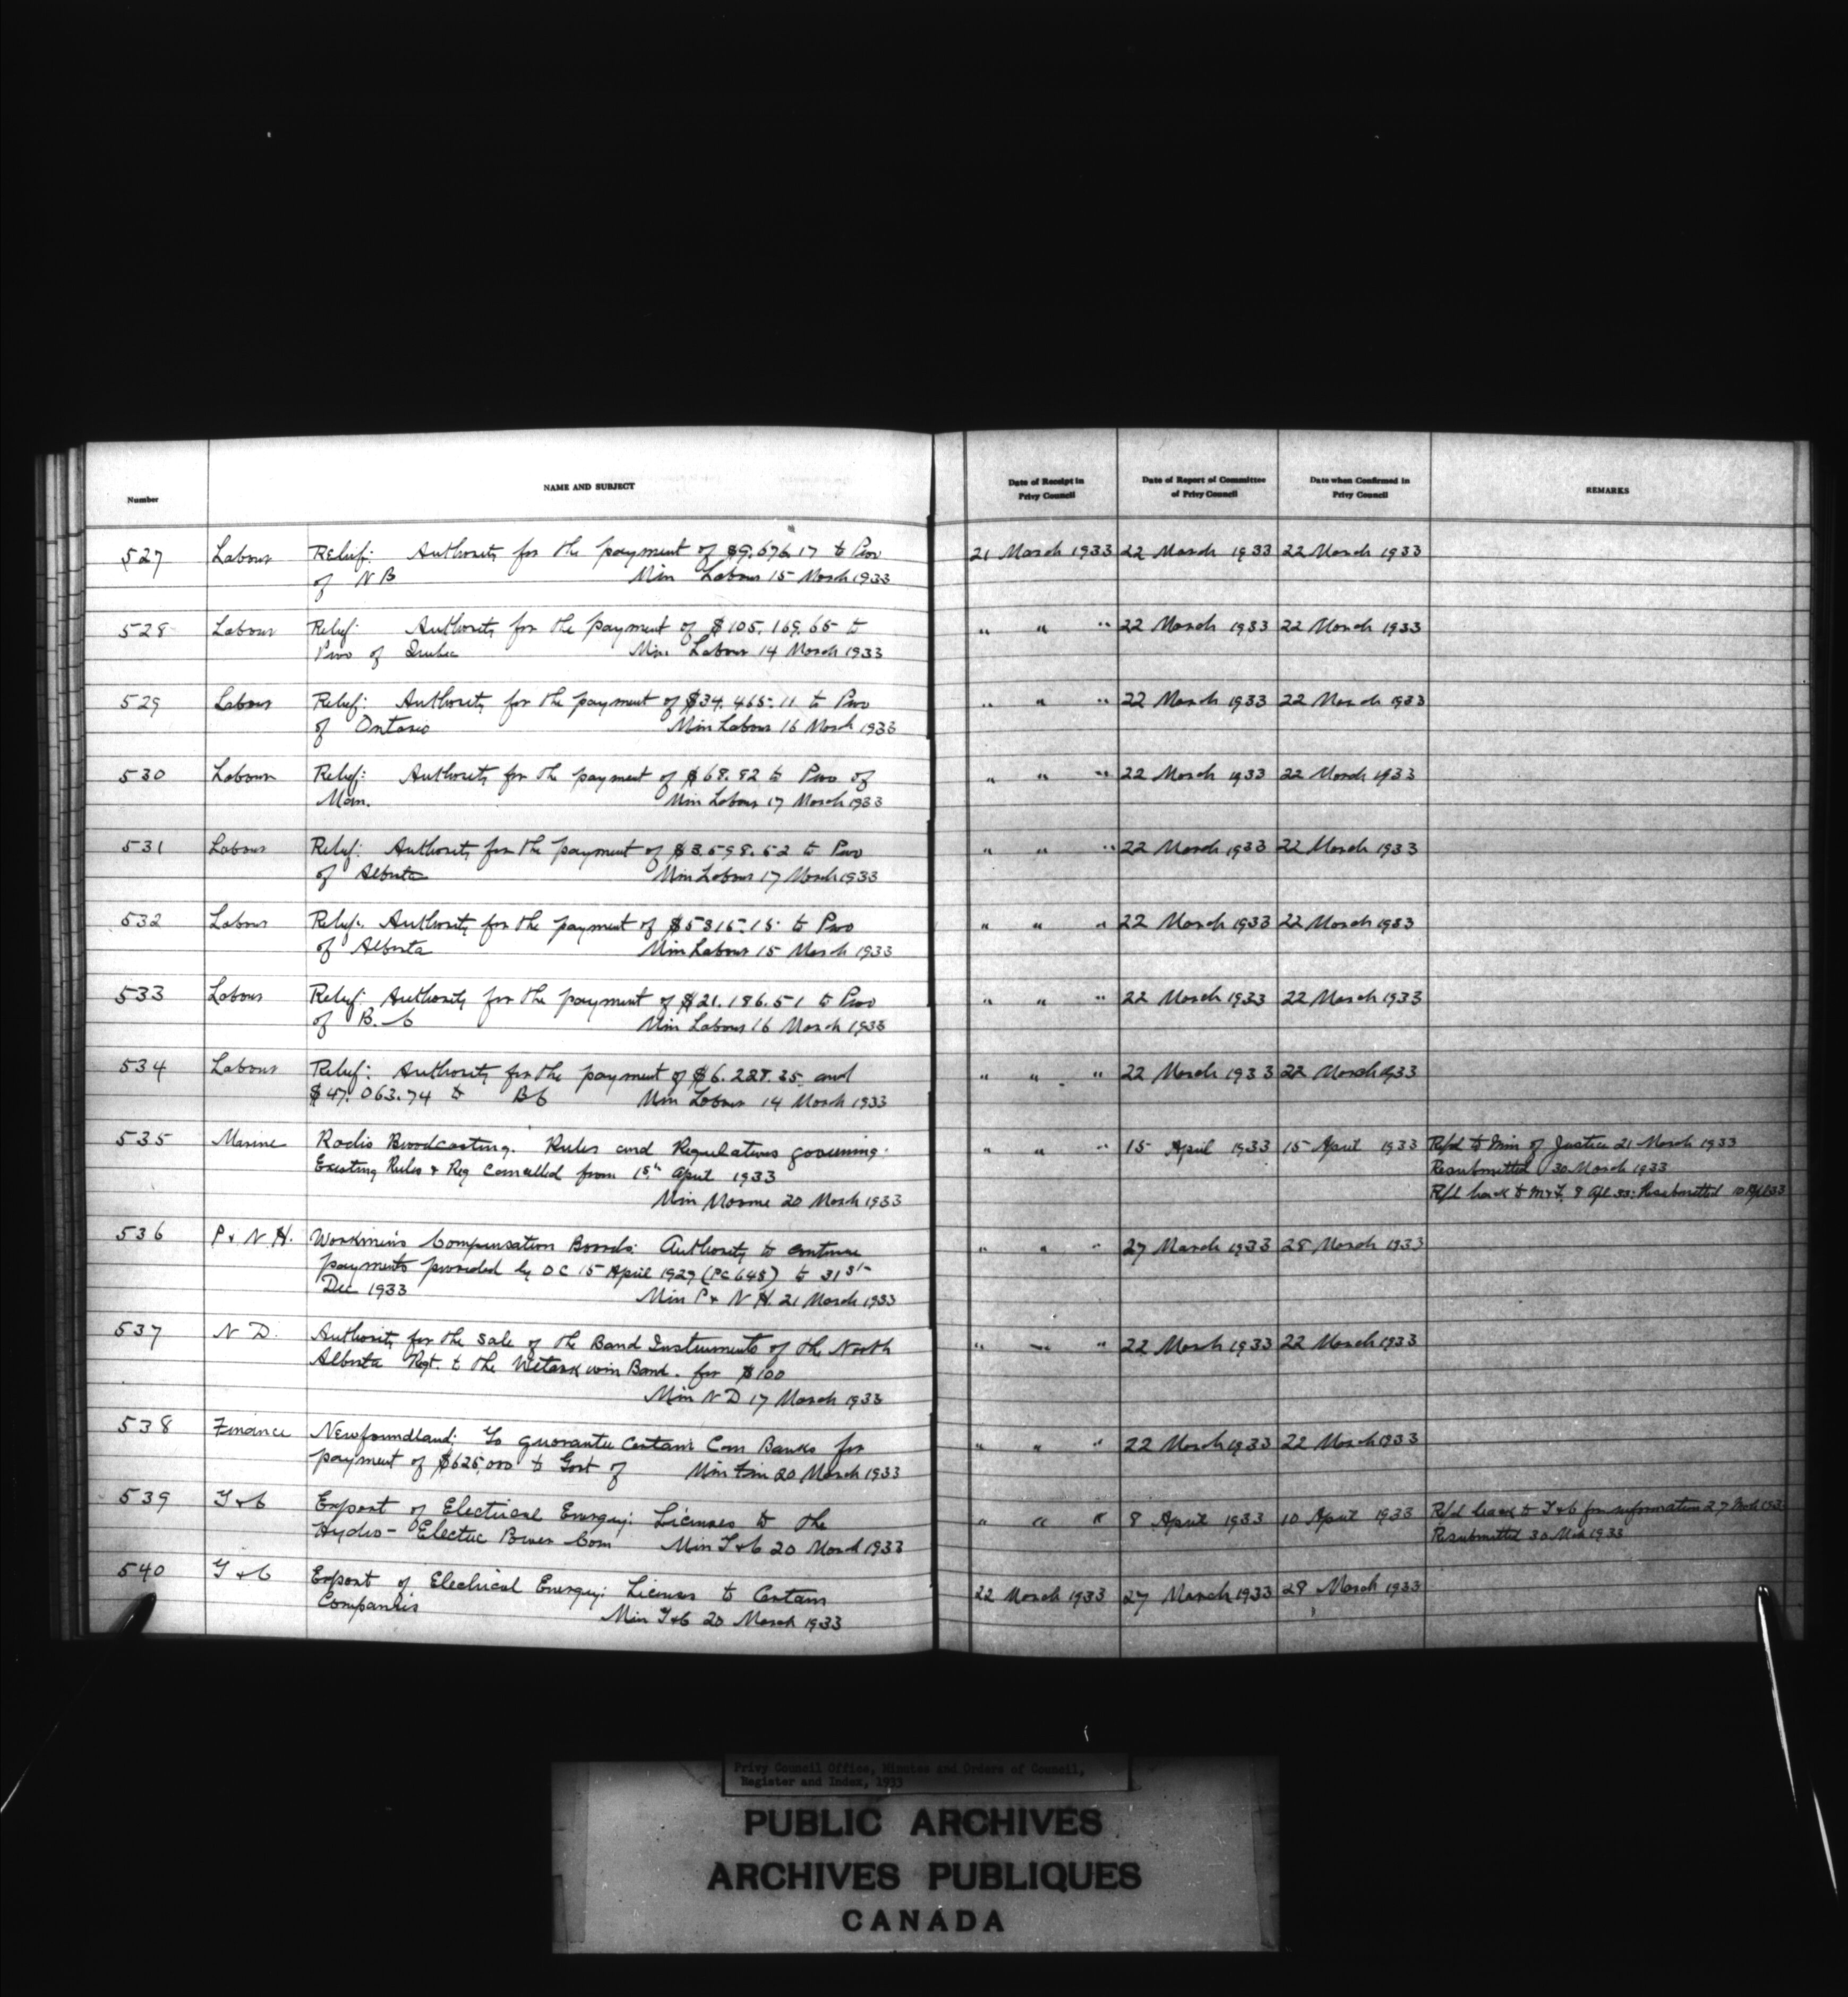 Number
NAME AND SUBJECT
Date of Receipt in Privy Council
Date of Report of Committee of Privy Council
Date when Confirmed in Privy Council
REMARKS
527 Labour Relief: Authority for the payment of $9.676.17 to Prov 21 March 1933 22 March 1933 22 March 1933
of N B Min Labour 15 March 1933
528 Labour Relief: Authority for the payment of $105.169.65 to " " " 22 March 1933 22 March 1933
Prov of Quebec Min. Labour 14 March 1933
529 Labour Relief: Authority for the payment of $34.465.11 to Prov " " " 22 March 1933 22 March 1933
of Ontario Min Labour 16 March 1933
530 Labour Relief: Authority for the payment of $68.92 to Prov of " " " 22 March 1933 22 March 1933
Man. Min Labour 17 March 1933
531 Labour Relief: Authority for the payment of $3.598.52 to Prov " " " 22 March 1933 22 March 1933
of Alberta Min Labour 17 March 1933
532 Labour Relief. Authority for the payment of $5315.15 to Prov " " " 22 March 1933 22 March 1933
of Alberta Min Labour 15 March 1933
533 Labour Relief: Authority for the payment of $21.186.51 to Prov " " " 22 March 1933 22 March 1933
of B. C Min Labour 16 March 1933
534 Labour Relief: Authority for the payment of $6.228.25 and " " " 22 March 1933 22 March 1933
$47.063.74 to B C Min Labour 14 March 1933
535 Marine Radio Broadcasting. Rules and Regulations governing. " " " 15 April 1933 15 April 1933 Refd to Min of Justice 21 March 1933
Existing Rules & Reg cancelled from 15th April 1933 Resubmitted 30 March 1933
Min Marine 20 March 1933 Refd back to 8 Apl 33: Resubmitted 10 Apl 33
536 P & N H. Workmen's Compensation Boards: Authority to continue " " " 27 March 1933 28 March 1933
payments provided by O C 15 April 1929 (PC 648) to 31st
Dec 1933 Min P & N H. 21 March 1933
537 N D. Authority for the sale of the Band Instruments of the North " " " 22 March 1933 22 March 1933
Alberta Regt. to the Wetaskiwin Band. for $100
Min N D 17 March 1933
538 Finance Newfoundland: To guarantee certain Com Banks for " " " 22 March 1933 22 March 1933
payment of $625,000 to Govt of Min Fin 20 March 1933
539 T & C Export of Electrical Energy: Licenses to the " " " 8 April 1933 10 April 1933 Refd back to T & C for information 27 Mch 193
Hydro-Electric Power Com Min T & C 20 March 1933 Resubmitted 30 Mch 1933
540 T & C Export of Electrical Energy: Licenses to Certain 22 March 1933 27 March 1933 28 March 1933
Companies Min T & C 20 March 1933
Privy Council Office, Minutes and Orders of Council,
Register and Index, 1933
PUBLIC ARCHIVES
ARCHIVES PUBLIQUES
CANADA